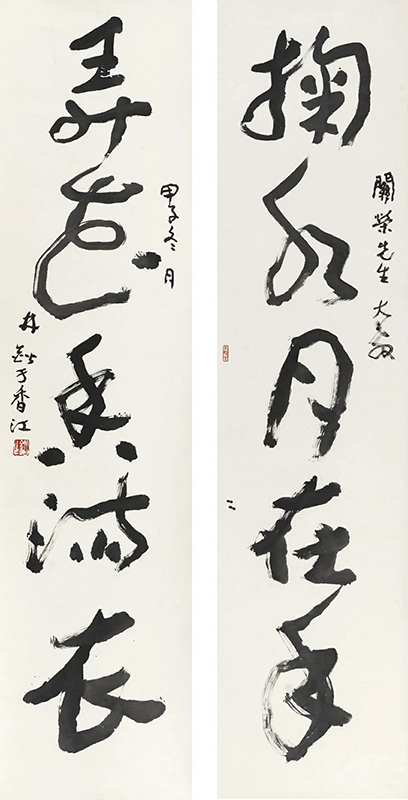 掬水月在手
關榮先生大
弄花香滿衣
甲子冬月
林鍇于香江